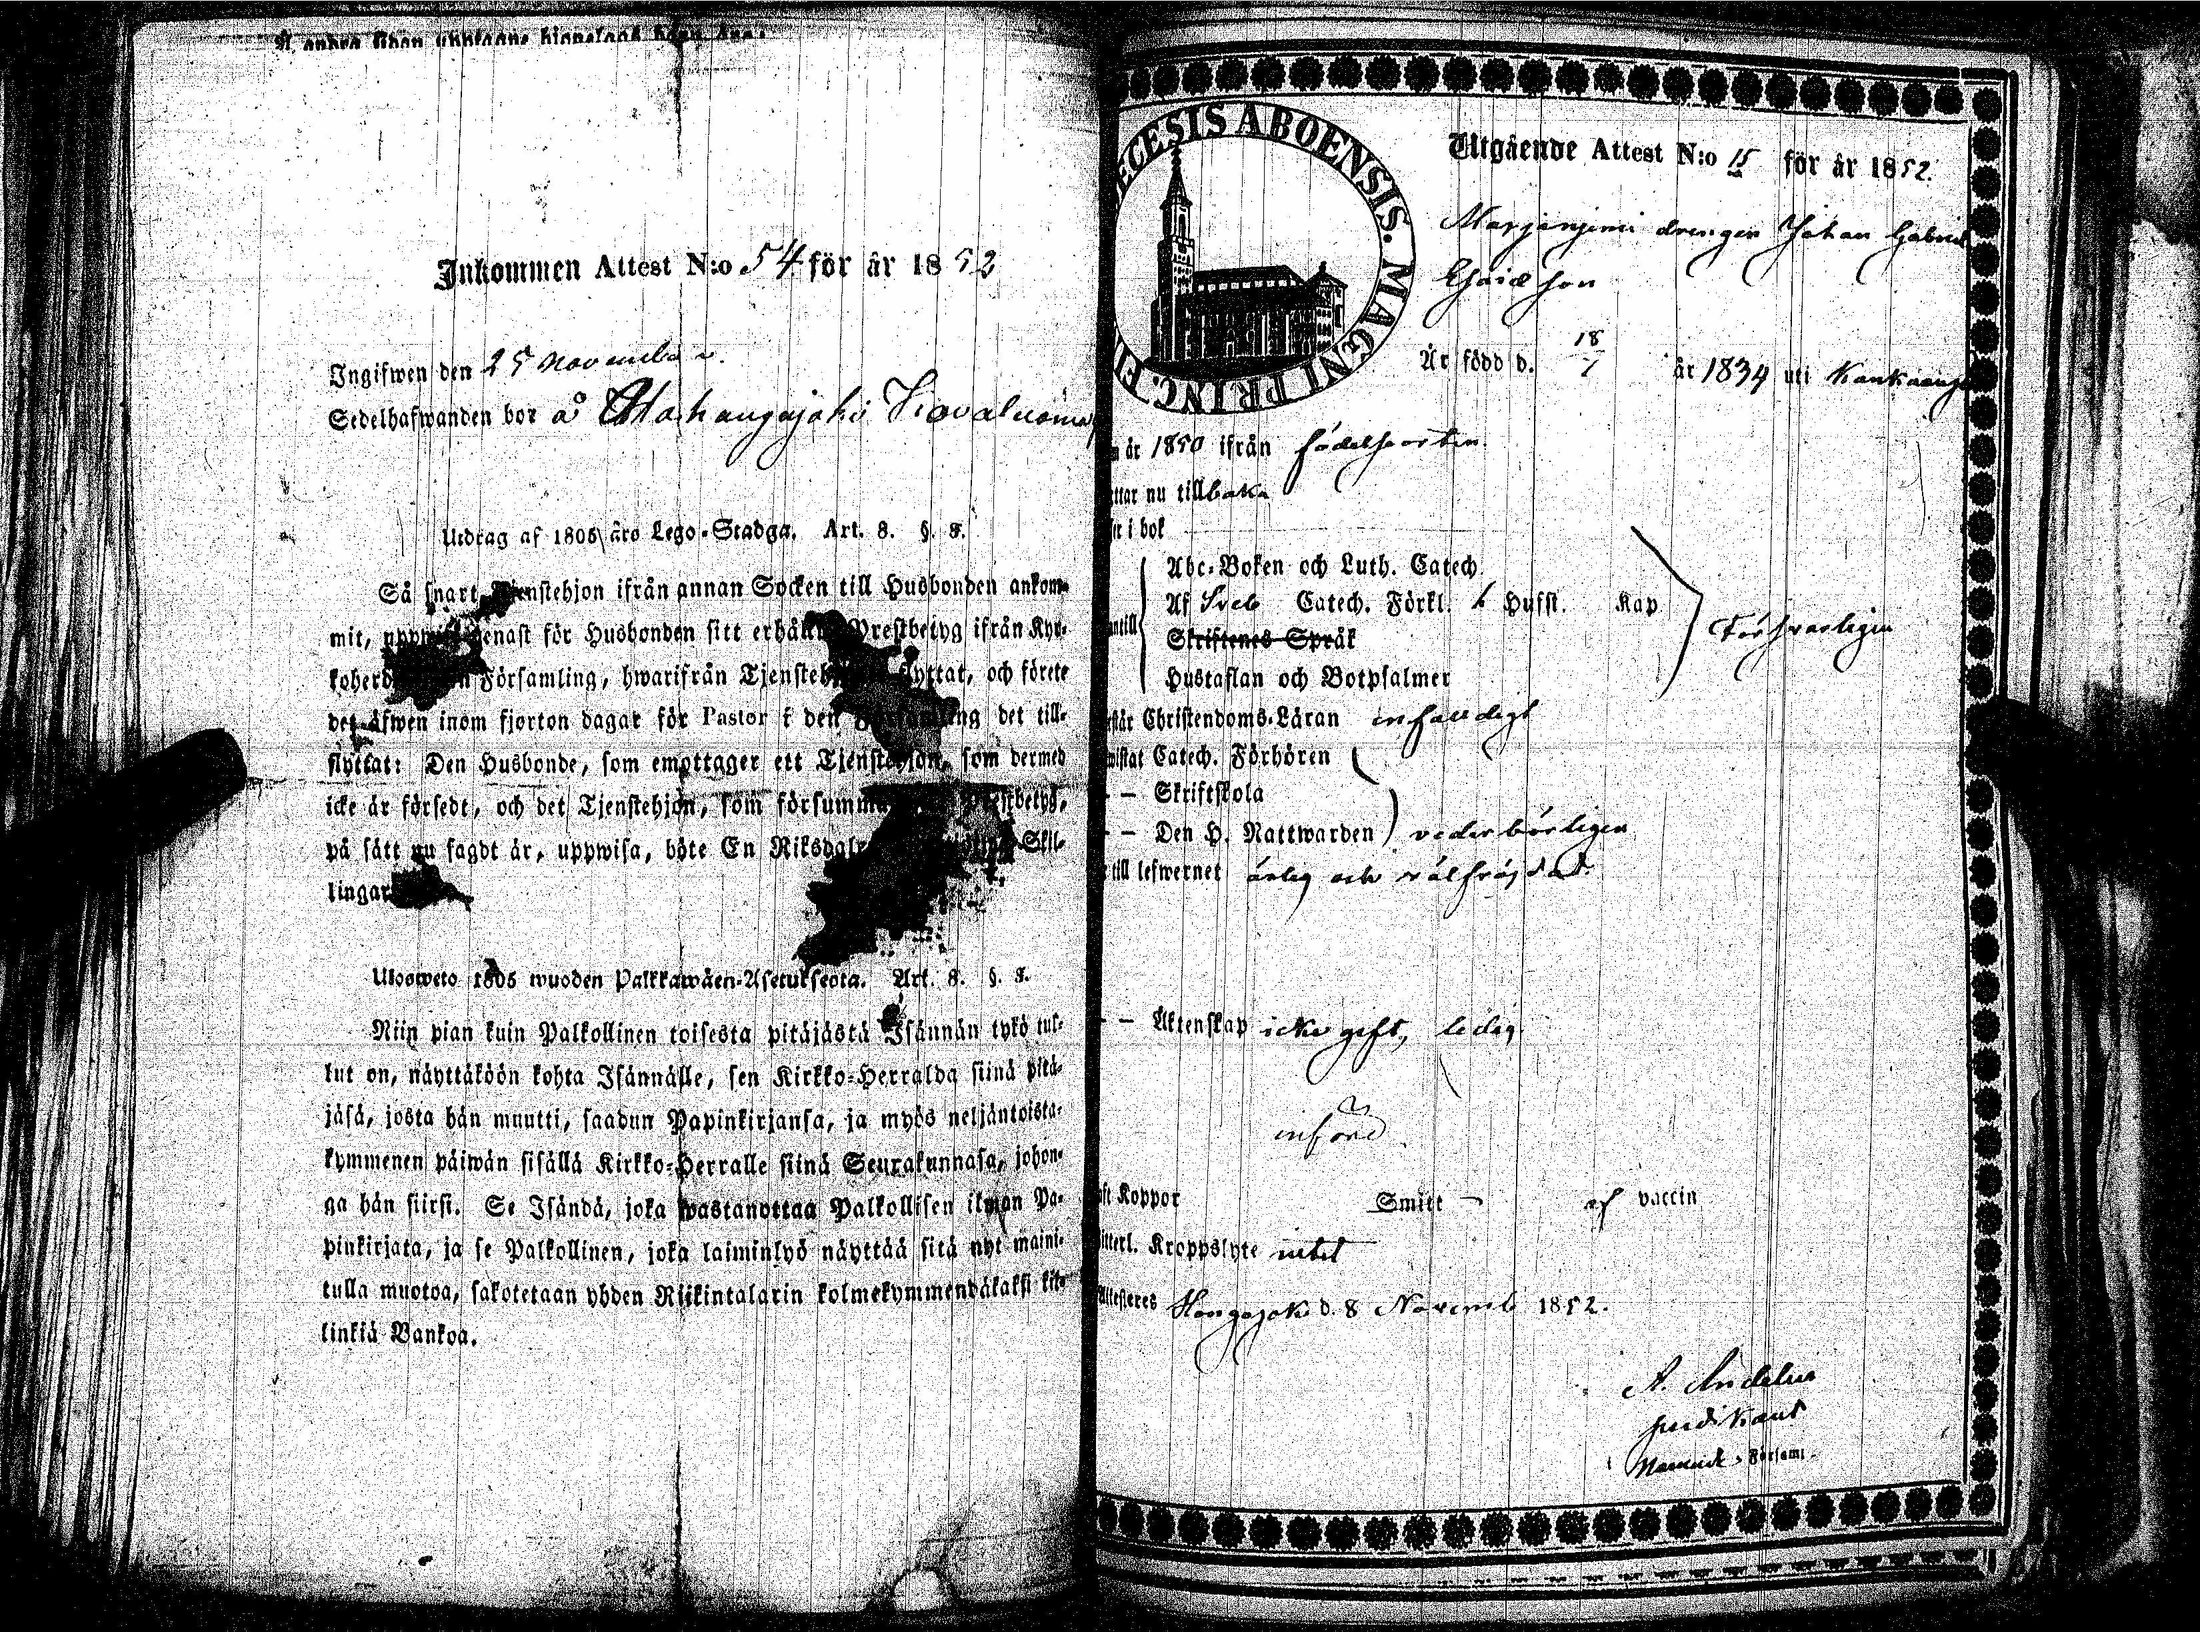 Inkommen Attest N:o 54 för år 1852
Ingifwen den 25 november
Sedelhafwanden bor å
Utdrag af 1805 års Lego-Stadga. Art. 8. §. 8.
Så snart Tjenstehjon ifrån annan Socken till Husbonden ankom-
mit, genast för Husbonden sitt Prestbetyg ifrån Kyr-
Församling, hwarifrån flyttat, och förete
det äfwen inom fjorton dagar för Pastor i den det till-
flyttat: Den Husbonde, som emottager ett Tjenstehjon, som dermed
icke är försedt, och det Tjenstehjon, som
på sätt nu sagdt är, uppwisa, böte En Skil-
lingar
Ulosweto 1805 wuoden Palkkawäen-Asetuksesta. Art. 8. §. 8.
Niin pian kuin Palkollinen toisesta pitäjästä Isännän tykö tul-
lut on, näyttäköön kohta Isännälle, sen Kirkko-Herralda siinä pitä-
jäsä, josta hän muutti, saadun Papinkirjansa, ja myös neljäntoista-
kymmenen päiwän sisällä Kirkko-Herralle siinä Seurakunnasa, johon-
ga hän siirsi. Se Isändä, joka wastanottaa Palkollisen ilman Pa-
pinkirjata, ja se Palkollinen, joka laiminlyö näyttää sitä nyt maini-
tulla muotoa, sakotetaan yhden Riikintalarin kolmekymmendäkaksi kil-
linkiä Bankoa.
ECESIS ABOENSIS. MAGNI PRINC.
Utgående Attest N:o 15 för år 1852.
drengen Johan Gabriel
Är född d. 18/7 år 1834 uti
år 1850 ifrån födelseorten.
nu tillbaka
i bok
Abc-Boken och Luth. Catech.
Af Sveb Catech. Förkl. Husst. Kap
Skriftenes Språk
Hustaflan och Botpsalmer
Försvarligen
Christendoms-Läran enfalldigt
Catech. Förhören
— — Skriftskola
— — Den H. Nattwarden vederbörligen
till lefwernet ärlig och välfrejdad.
— — Äktenskap icke gift, ledig
införd
Koppor Smitt af vaccin
Kroppslyte intet
Attesteres d. 8 Novemb 1852.
predikant
Församl.